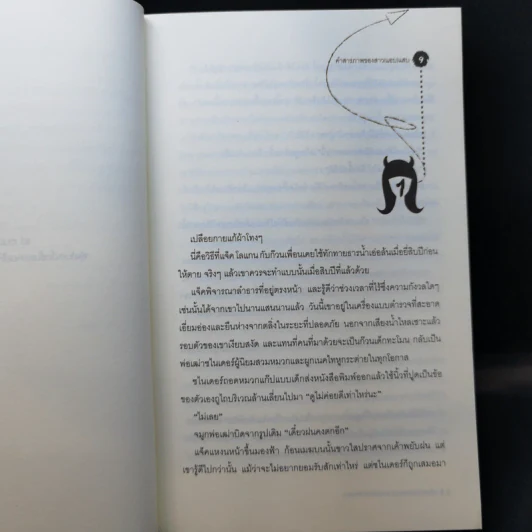 คำสารภาพของสาวแสบแสบ 9
1
เปลือยกายแก้ผ้าโทงๆ
นี่คือวิธีที่แจ็ค โลแกน กับก๊วนเพื่อนเคยใช้ทักทายธารน้ำเย่อลันเมื่อยี่สิบปีก่อน
ให้ตาย จริงๆ แล้วเขาควรจะทำแบบนั้นเมื่อสิบปีที่แล้วด้วย
แจ็คพิจารณาลำธารที่อยู่ตรงหน้า และรู้ดีว่าช่วงเวลาที่ไร้ซึ่งความกังวลใดๆ
เช่นนั้นได้จากเขาไปนานแสนนานแล้ว วันนี้เขาอยู่ในเครื่องแบบตำรวจที่สะอาด
เอี่ยมอ่องและยืนห่างจากตลิ่งในระยะที่ปลอดภัย นอกจากเสียงน้ำไหลเซาะแล้ว
รอบตัวของเขาเงียบสงัด และแทนที่คนที่มาด้วยจะเป็นก๊วนเด็กทะโมน กลับเป็น
พ่อเฒ่าชไนเดอร์ผู้นิยมสวมหมวกและผูกเนคไทหูกระต่ายในทุกโอกาส
ชไนเดอร์ถอดหมวกแก๊ปแบบเด็กส่งหนังสือพิมพ์ออกแล้วใช้นิ้วที่ปูดเป็นข้อ
ของตัวเองถูไถบริเวณล้านเลี่ยนไปมา “ดูไม่ค่อยดีเท่าไหร่นะ”
“ไม่เลย”
จมูกพ่อเฒ่าบิดจากรูปเดิม “เดี๋ยวฝนคงตกอีก”
แจ็คแหงนหน้าขึ้นมองฟ้า ก้อนเมฆบนนั้นขาวใสปราศจากเค้าพยับฝน แต่
เขารู้ดีไปกว่านั้น แม้ว่าจะไม่อยากยอมรับสักเท่าไหร่ แต่ชไนเดอร์ก็ถูกเสมอมา